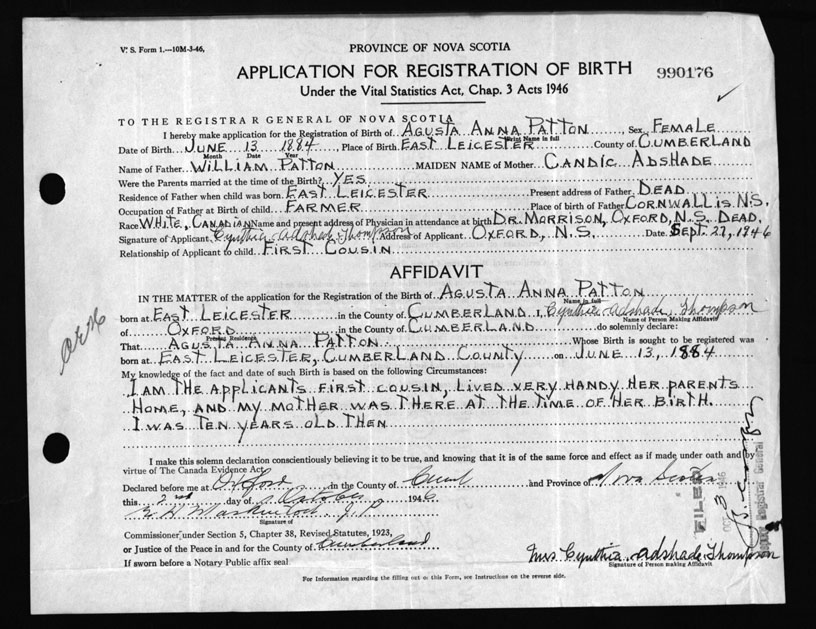 V. S. Form 1.—10M-3-46,
PROVINCE OF NOVA SCOTIA
APPLICATION FOR REGISTRATION OF BIRTH
990176
Under the Vital Statistics Act, Chap. 3 Acts 1946
TO THE REGISTRAR GENERAL OF NOVA SCOTIA
I hereby make application for the Registration of Birth of AGUSTA ANNA PATTON, Sex FEMALE
Print Name in full
Date of Birth JUNE 13 1884 Place of Birth EAST LEICESTER County of CUMBERLAND
Month Date Year
Name of Father WILLIAM PATTON MAIDEN NAME of Mother CANDIC ADSHADE
Were the Parents married at the time of the Birth? YES
Residence of Father when child was born EAST LEICESTER Present address of Father DEAD
Occupation of Father at Birth of child FARMER Place of birth of Father CORNWALLIS N.S.
Race WHITE, CANADIAN Name and present address of Physician in attendance at birth DR. MORRISON, OXFORD, N.S. DEAD.
Signature of Applicant Cynthia Adshade Thompson Address of Applicant OXFORD, N.S. Date Sept. 27, 1946
Relationship of Applicant to child FIRST COUSIN
AFFIDAVIT
IN THE MATTER of the application for the Registration of the Birth of AGUSTA ANNA PATTON
Name in full
born at EAST LEICESTER in the County of CUMBERLAND I, Cynthia Adshade Thompson
Name of Person Making Affidavit
of OXFORD in the County of CUMBERLAND do solemnly declare:
Present Residence
That AGUSTA ANNA PATTON Whose Birth is sought to be registered was
born at EAST LEICESTER, CUMBERLAND COUNTY on JUNE 13, 1884
My knowledge of the fact and date of such Birth is based on the following Circumstances:
I AM THE APPLICANTS FIRST COUSIN, LIVED VERY HANDY HER PARENTS
HOME, AND MY MOTHER WAS THERE AT THE TIME OF HER BIRTH.
I WAS TEN YEARS OLD THEN
I make this solemn declaration conscientiously believing it to be true, and knowing that it is of the same force and effect as if made under oath and by
virtue of The Canada Evidence Act.
Declared before me at Oxford in the County of Cumb and Province of Nova Scotia
this 2nd day of October 1946
J. P.
Signature of
Commissioner under Section 5, Chapter 38, Revised Statutes, 1923,
or Justice of the Peace in and for the County of Cumberland
If sworn before a Notary Public affix seal
Mrs Cynthia Adshade Thompson
Signature of Person making Affidavit
For Information regarding the filling out of this Form, see Instructions on the reverse side.
FILED
OCT 3 1946
Registrar General